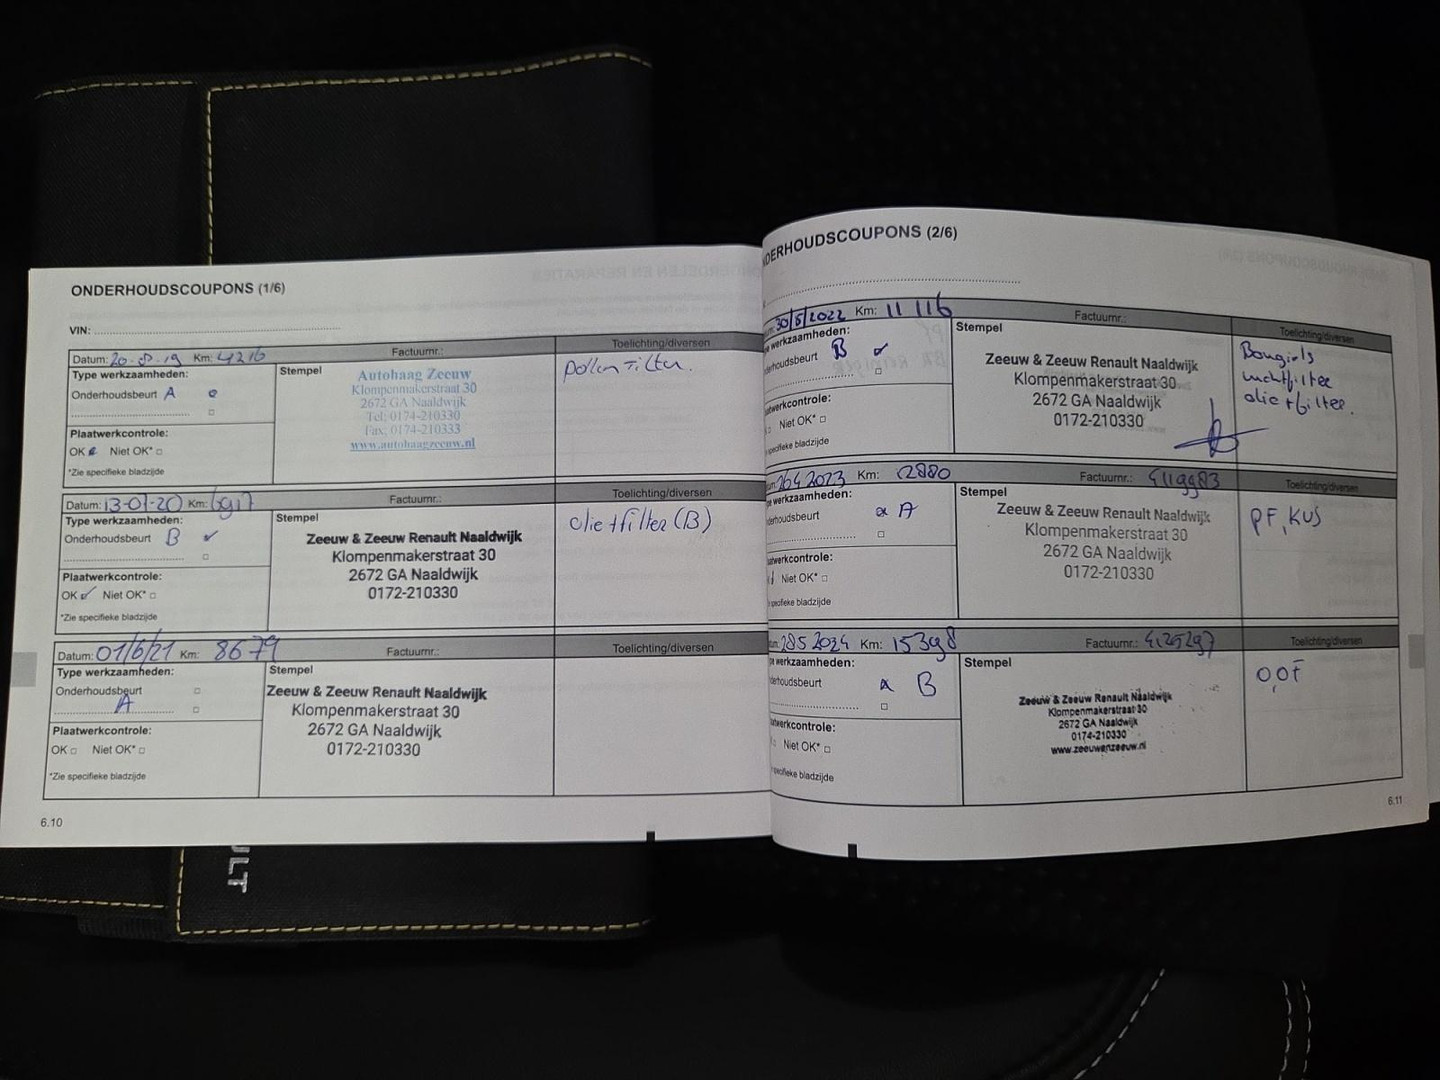 ONDERHOUDSCOUPONS (1/6)
VIN:
Datum: 20.08.19 Km: 4216 Factuurnr.: Toelichting/diversen
Type werkzaamheden:
Onderhoudsbeurt A
Plaatwerkcontrole:
OK Niet OK*
*Zie specifieke bladzijde
Stempel
Autohaag Zeeuw
Klompenmakerstraat 30
2672 GA Naaldwijk
Tel: 0174-210330
Fax: 0174-210333
www.autohaagzeeuw.nl
pollen filter.
Datum: 13-01-20 Km: Factuurnr.: Toelichting/diversen
Type werkzaamheden:
Onderhoudsbeurt B
Plaatwerkcontrole:
OK Niet OK*
*Zie specifieke bladzijde
Stempel
Zeeuw & Zeeuw Renault Naaldwijk
Klompenmakerstraat 30
2672 GA Naaldwijk
0172-210330
olietfilter (B)
Datum: 01/6/21 Km: 8679 Factuurnr.: Toelichting/diversen
Type werkzaamheden:
Onderhoudsbeurt
A
Plaatwerkcontrole:
OK Niet OK*
*Zie specifieke bladzijde
Stempel
Zeeuw & Zeeuw Renault Naaldwijk
Klompenmakerstraat 30
2672 GA Naaldwijk
0172-210330
6.10
NDERHOUDSCOUPONS (2/6)
30/5/2022 Km: 11 116 Factuurnr.: Toelichting/diversen
werkzaamheden:
houdsbeurt B
aatwerkcontrole:
Niet OK*
specifieke bladzijde
Stempel
Zeeuw & Zeeuw Renault Naaldwijk
Klompenmakerstraat 30
2672 GA Naaldwijk
0172-210330
Bougiels
luchtfilter
olietfilter.
2023 Km: 12880 Factuurnr.: 4119983 Toelichting/diversen
werkzaamheden:
houdsbeurt A
atwerkcontrole:
Niet OK*
specifieke bladzijde
Stempel
Zeeuw & Zeeuw Renault Naaldwijk
Klompenmakerstraat 30
2672 GA Naaldwijk
0172-210330
PF, KUS
28 5 2024 Km: 15398 Factuurnr.: 4125297 Toelichting/diversen
werkzaamheden:
houdsbeurt B
aatwerkcontrole:
Niet OK*
specifieke bladzijde
Stempel
Zeeuw & Zeeuw Renault Naaldwijk
Klompenmakerstraat 30
2672 GA Naaldwijk
0174-210330
www.zeeuwenzeeuw.nl
O,OF
6.11
ULT